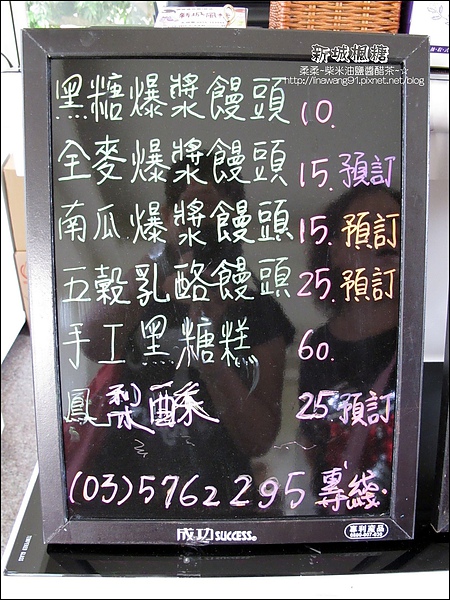 新城楓糖
柔柔-柴米油鹽醬醋茶-☆
http://linawang91.pixnet.net/blog
黑糖爆漿饅頭 10.
全麥爆漿饅頭 15. 預訂
南瓜.爆漿饅頭 15. 預訂
五穀乳酪饅頭 25. 預訂
手工黑糖糕 60.
鳳梨酥 25. 預訂
(03)5762295 專線.
成功 SUCCESS®
專利產品